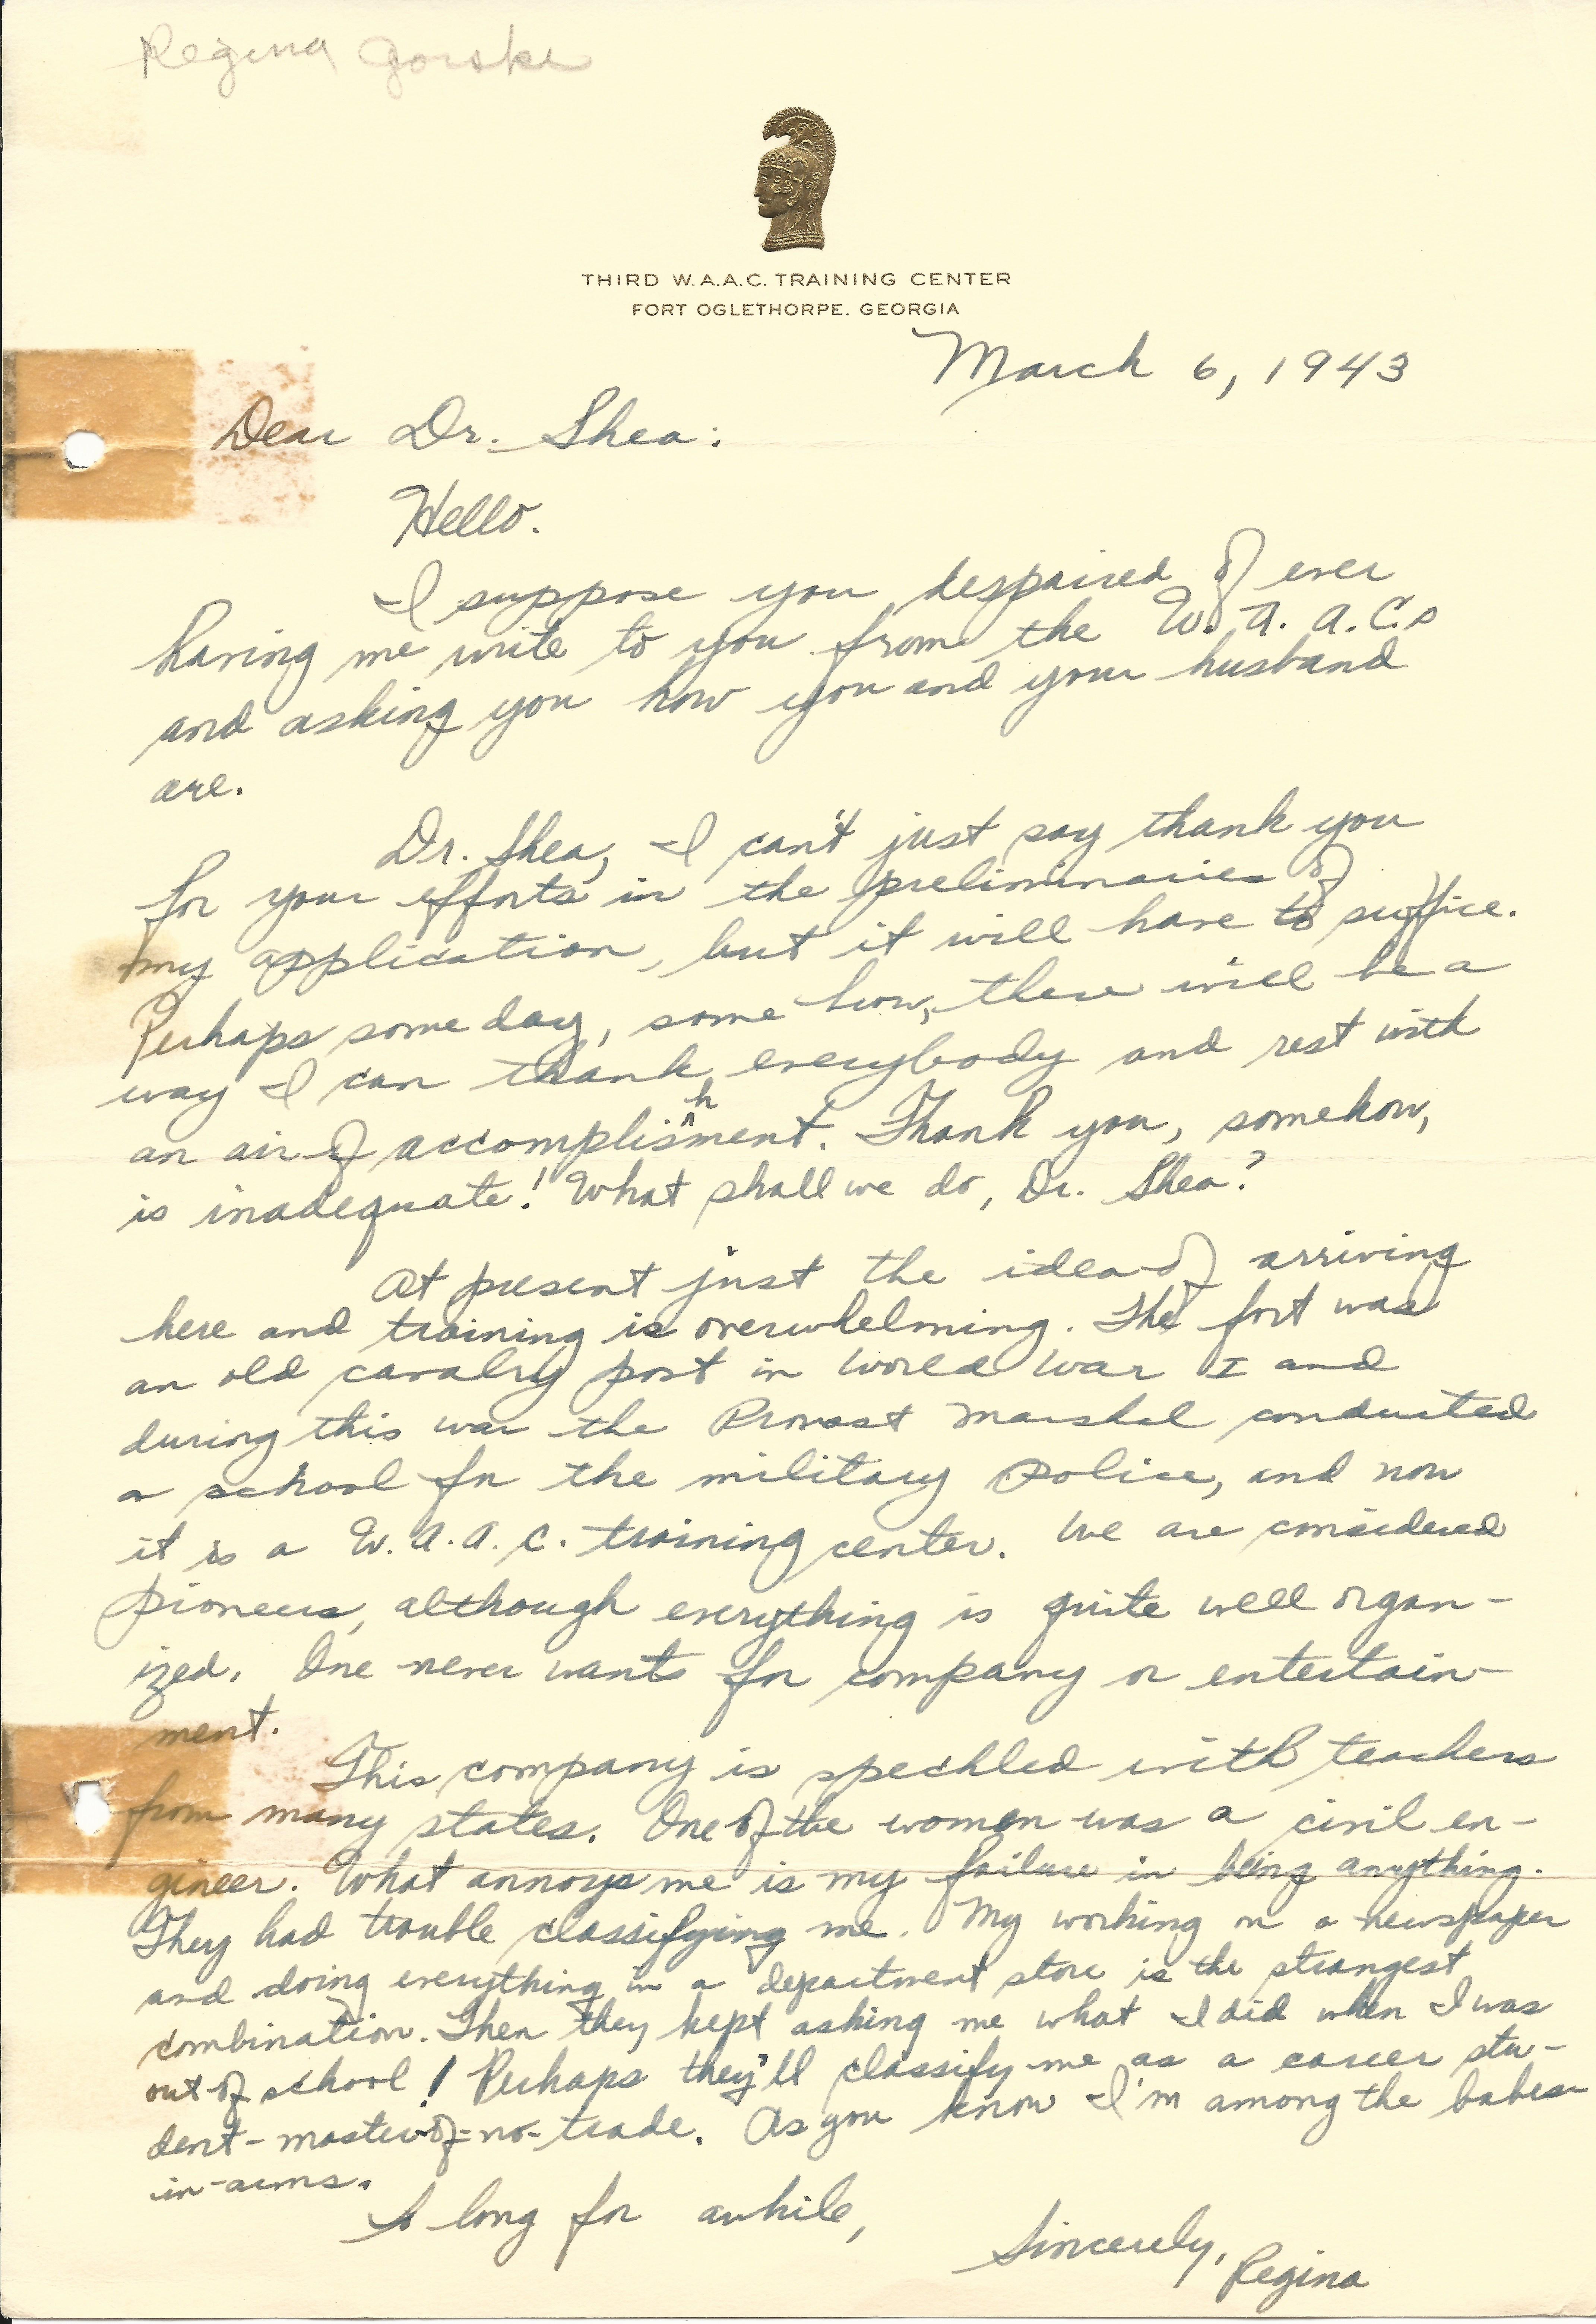 Regina Gorski
THIRD W.A.A.C. TRAINING CENTER
FORT OGLETHORPE, GEORGIA
March 6, 1943
Dear Dr. Shea:
Hello.
I suppose you despaired of ever
having me write to you from the W. A. A. C.s
and asking you how you and your husband
are.
Dr. Shea, I can't just say thank you
for your efforts in the preliminaries of
my application, but it will have to suffice.
Perhaps some day, some how, there will be a
way I can thank everybody and rest with
an air of accomplishment. Thank you, somehow,
is inadequate! What shall we do, Dr. Shea?
At present just the idea of arriving
here and training is overwhelming. The fort was
an old cavalry post in World War I and
during this war the Provost Marshal conducted
a school for the military police, and now
it is a W. A. A. C. training center. We are considered
pioneers, although everything is quite well organ-
ized. One never wants for company or entertain-
ment.
This company is speckled with teachers
from many states. One of the women was a civil en-
gineer. What annoys me is my failure in being anything.
They had trouble classifying me. My working on a newspaper
and doing everything in a department store is the strangest
combination. Then they kept asking me what I did when I was
out of school! Perhaps they'll classify me as a career stu-
dent-master-of-no-trade. As you know I'm among the babes-
in-arms.
So long for awhile,
Sincerely,
Regina